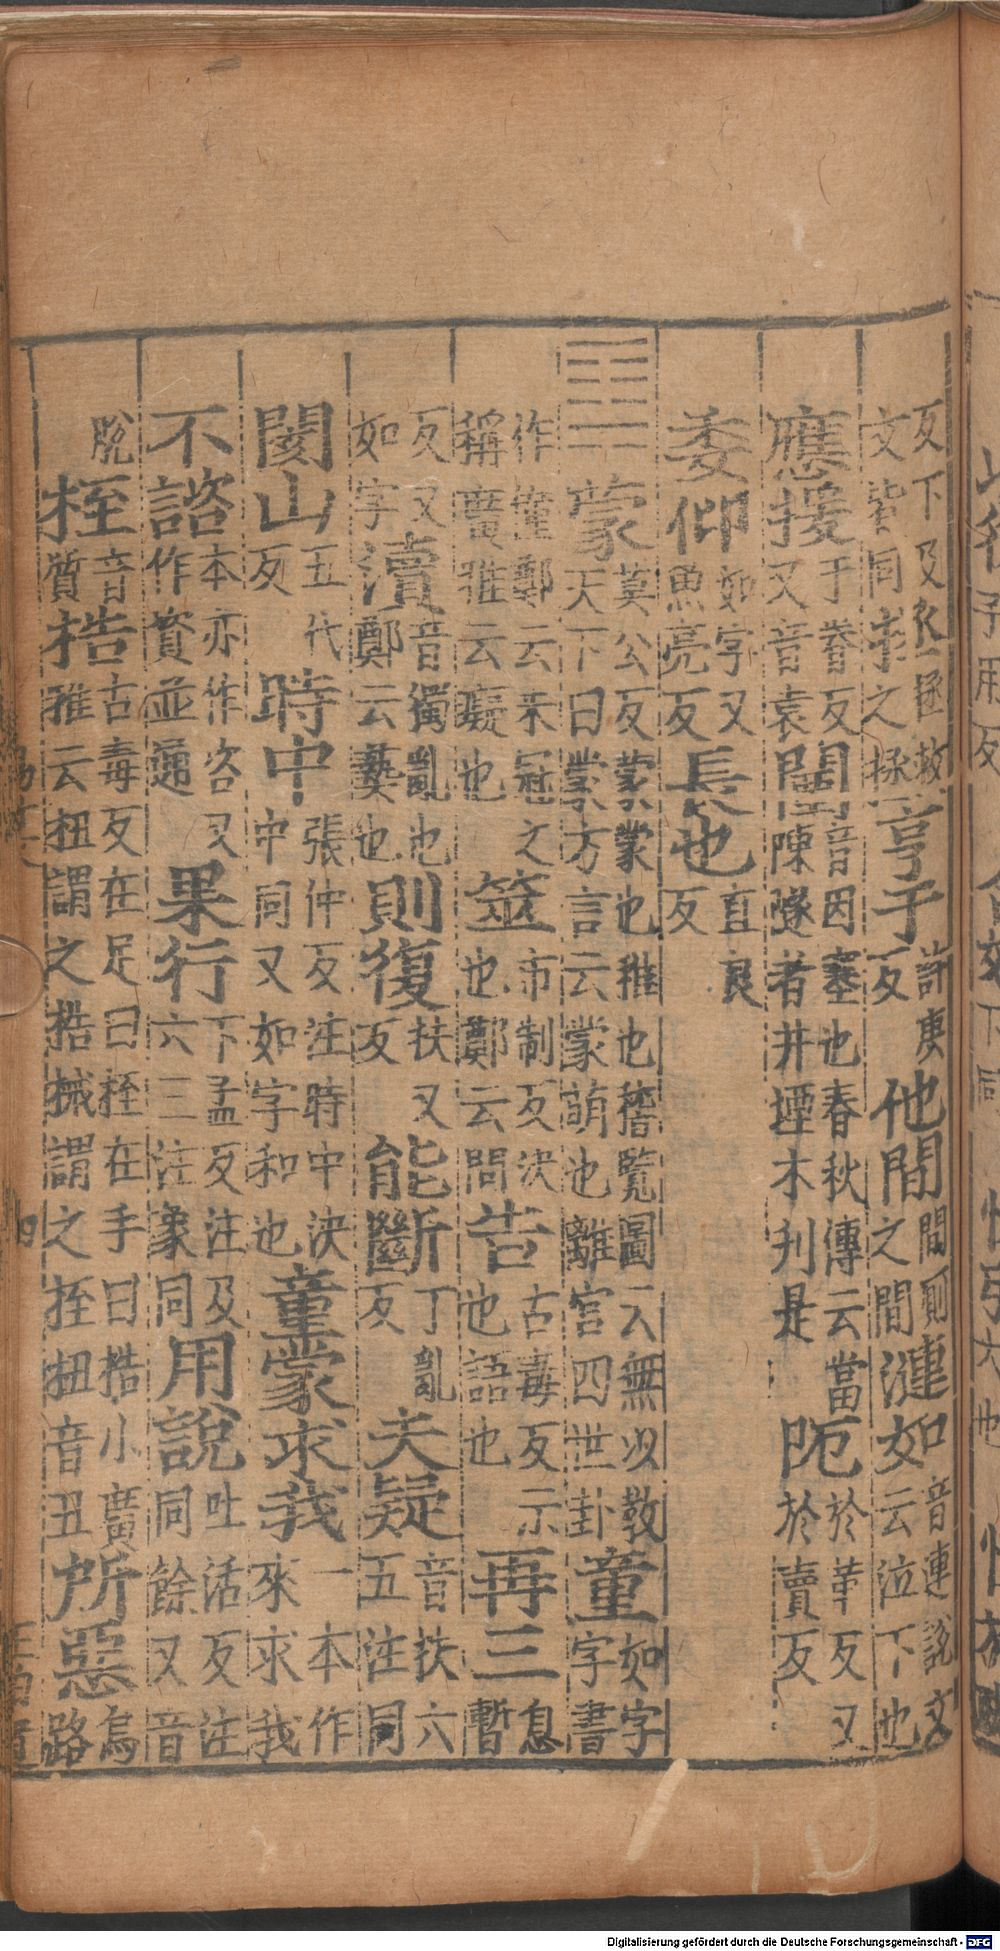 反下及文皆同拯救之拯亨于許庚反他閒閒廁之閒漣如音連說文云泣下也
應援于眷反又音袁闉音因塞也春秋傳云當陳隧者井堙木刋是阨於革反又於賣反
委仰如字又魚亮反長也直良反
䷃蒙莫公反蒙蒙也稚也稽覽圖云無以教天下曰蒙方言云蒙萌也離宮四世卦童如字字書
作僮鄭云未冠之稱廣雅云癡也筮市制反決也鄭云問也告古毒反示也語也再三息暫
反又如字瀆音獨亂也鄭云䙝也則復扶又反能斷丁亂反夫疑音扶六五注同
閡山五代反時中張仲反注時中決中同又如字和也童蒙求我一本作來求我
不諮本亦作咨又作資並通果行下孟反注及六三注象同用說吐活反注同餘又音
脫桎音質梏古毒反在足曰桎在手曰梏小廣雅云杻謂之梏械謂之桎杻音丑所惡烏路
Digitalisierung gefördert durch die Deutsche Forschungsgemeinschaft - DFG